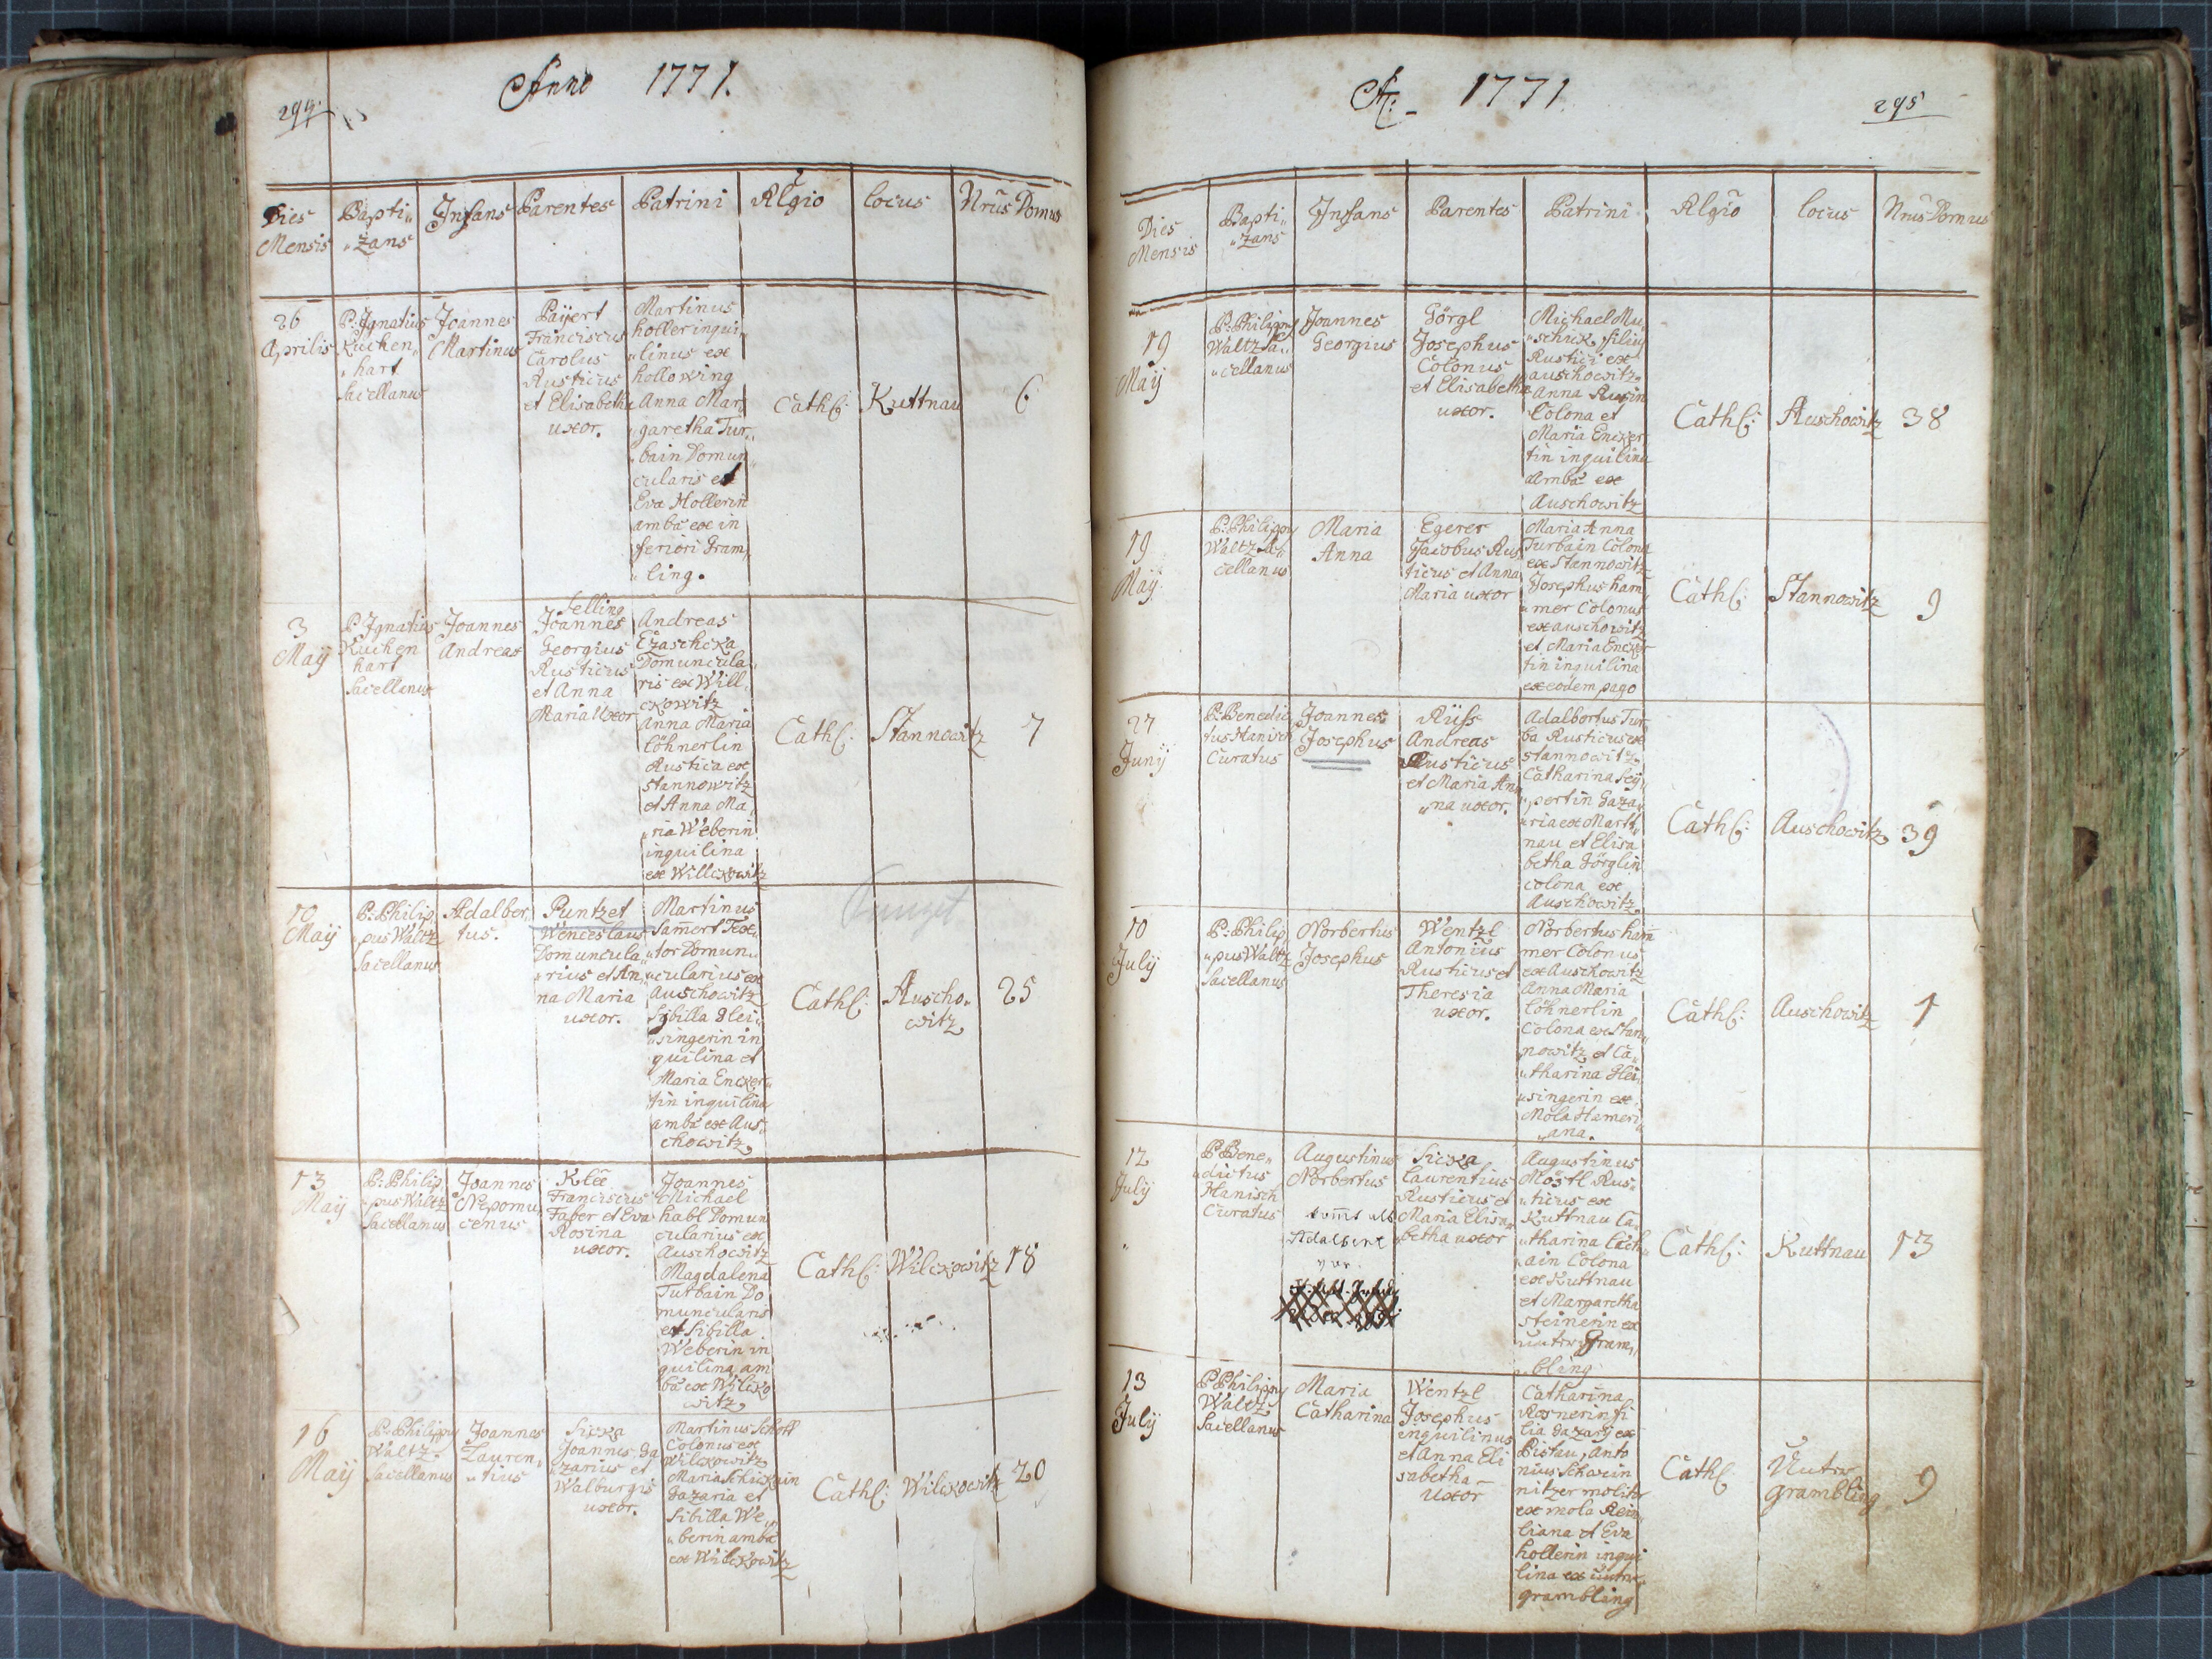 294.
Anno 1771.
Dies
Mensis
Bapti„
„zans
Infans
Parentes
Patrini
Rlgio
locus
Nrus Domus
26
Aprilis
P: Ignatius
Kuchen„
„hart
Sacellanus
Joannes
Martinus
Paÿert
Franciscus
Carolus
Rusticus
et Elisabetha
uxor.
Martinus
holler inqui„
„linus ex
hollowing
Anna Mar„
„garetha Tur„
„bain Domun„
cularis et
Eva Hollerin
amba ex in
feriori Gram„
„ling.
Cath:
Kuttnau
6
3
Maÿ
P: Ignatius
Kuchen
hart
Sacellanus
Joannes
Andreas
Selling
Joannes
Georgius
Rusticus
et Anna
Maria Uxor
Andreas
Czaschcka
Domuncula„
ris ex Will„
ckowitz
Anna Maria
Löhnerlin
Rustica ex
Stannowitz
et Anna Ma„
„ria Weberin
inquilina
ex Willckowitz
Cath:
Stannowitz
7
10
Maÿ
P: Philip„
„pus Waltz
Sacellanus
Adalber„
tus.
Puntzet
Wenceslaus
Domuncula„
„rius et An„
na Maria
uxor.
Martinus
Samert Tex„
„tor Domun„
„cularius ex
Auschowitz
Sibilla Glei„
„singerin in
quilina et
Maria Encker„
tin inquilina
amba ex Aus„
chowitz
Punzet
Cath:
Auscho„
witz
25
13
Maÿ
P: Philip„
„pus Waltz
Sacellanus
Joannes
Nepomu„
cenus
Klee
Franciscus
Faber et Eva
Rosina
uxor.
Joannes
Michael
habl Domun
cularius ex
Auschowitz
Magdalena
Turbain Do
muncularis
et Sibilla
Weberin in
quilina am
ba ex Wilcko
witz
Cath:
Wilckowitz
18
16
Maÿ
P: Philippus
Waltz
Sacellanus
Joannes
Lauren„
„tius
Sicka
Joannes Ga
„zarius et
Walburgis
uxor.
Martinus Scholl
Colonus ex
Wilckowitz
Maria Schickain
Gazaria et
Sibilla We„
„berin amba
ex Wilckowitz
Cath:
Wilckowitz
20
A: 1771
295
Dies
Mensis
Bapti„
„zans
Infans
Parentes
Patrini
Rlgio
locus
Nrus Domus
19
Maÿ
P: Philippus
Waltz Sa„
„cellanus
Joannes
Georgius
Görgl
Josephus
Colonus
et Elisabetha
uxor.
Michael Mu„
„schick filius
Rustici ex
auschowitz
Anna Rusin
Colona et
Maria Encker
tin inquilina
amba ex
Auschowitz
Cath:
Auschowitz
38
19
Maÿ
P: Philippus
Waltz Sa„
cellanus
Maria
Anna
Egerer
Jacobus Rus
ticus et Anna
Maria uxor
Maria Anna
Turbain Colona
ex Stannowitz
Josephus ham
„mer Colonus
ex auschowitz
et Maria Encker
tin inquilina
ex eodem pago
Cath:
Stannowitz
9
27
Junÿ
P: Benedic
tus Hanisch
Curatus
Joannes
Josephus
Rüss
Andreas
Rusticus
et Maria An
„na uxor.
Adalbertus Tur„
ba Rusticus ex
Stannowitz
Catharina Seÿ„
„pertin Gaza„
„ria ex Mart„
nau et Elisa
betha Görglin
colona ex
Auschowitz
Cath:
Auschowitz
39
10
Julÿ
P: Philip
„pus Waltz
Sacellanus
Norbertus
Josephus
Wentzl
Antonius
Rusticus et
Theresia
uxor.
Norbertus ham
mer Colonus
ex Auschowitz
Anna Maria
Löhnerlin
Colona ex Stan„
„nowitz et Ca„
„tharina Glei„
„singerin ex
Mola Hameri„
„ana.
Cath:
Auschowitz
1
12
Julÿ
P Bene„
„dictus
Hanisch
Curatus
Augustinus
Norbertus
kommt als
Adalbert
vor
Sicka
Laurentius
Rusticus et
Maria Elisa„
betha uxor
Augustinus
Möstl Rus„
„ticus ex
Kuttnau Ca„
„tharina
„ain Colona
ex Kuttnau
et Margaretha
Steinerin ex
unter Gram„
„bling
Cath:
Kuttnau
13
13
Julÿ
P Philippus
Waltz
Sacellanus
Maria
Catharina
Wentzl
Josephus
inquilinus
et Anna Eli
sabetha
Uxor
Catharina
Rosnerin fi
lia Gazarÿ ex
Pistau, Anto
nius Schwein
nitzer molitor
ex mola Rein„
liana et Eva
hollerin inqui
lina ex unter
grambling
Cath:
Unter
grambling
9